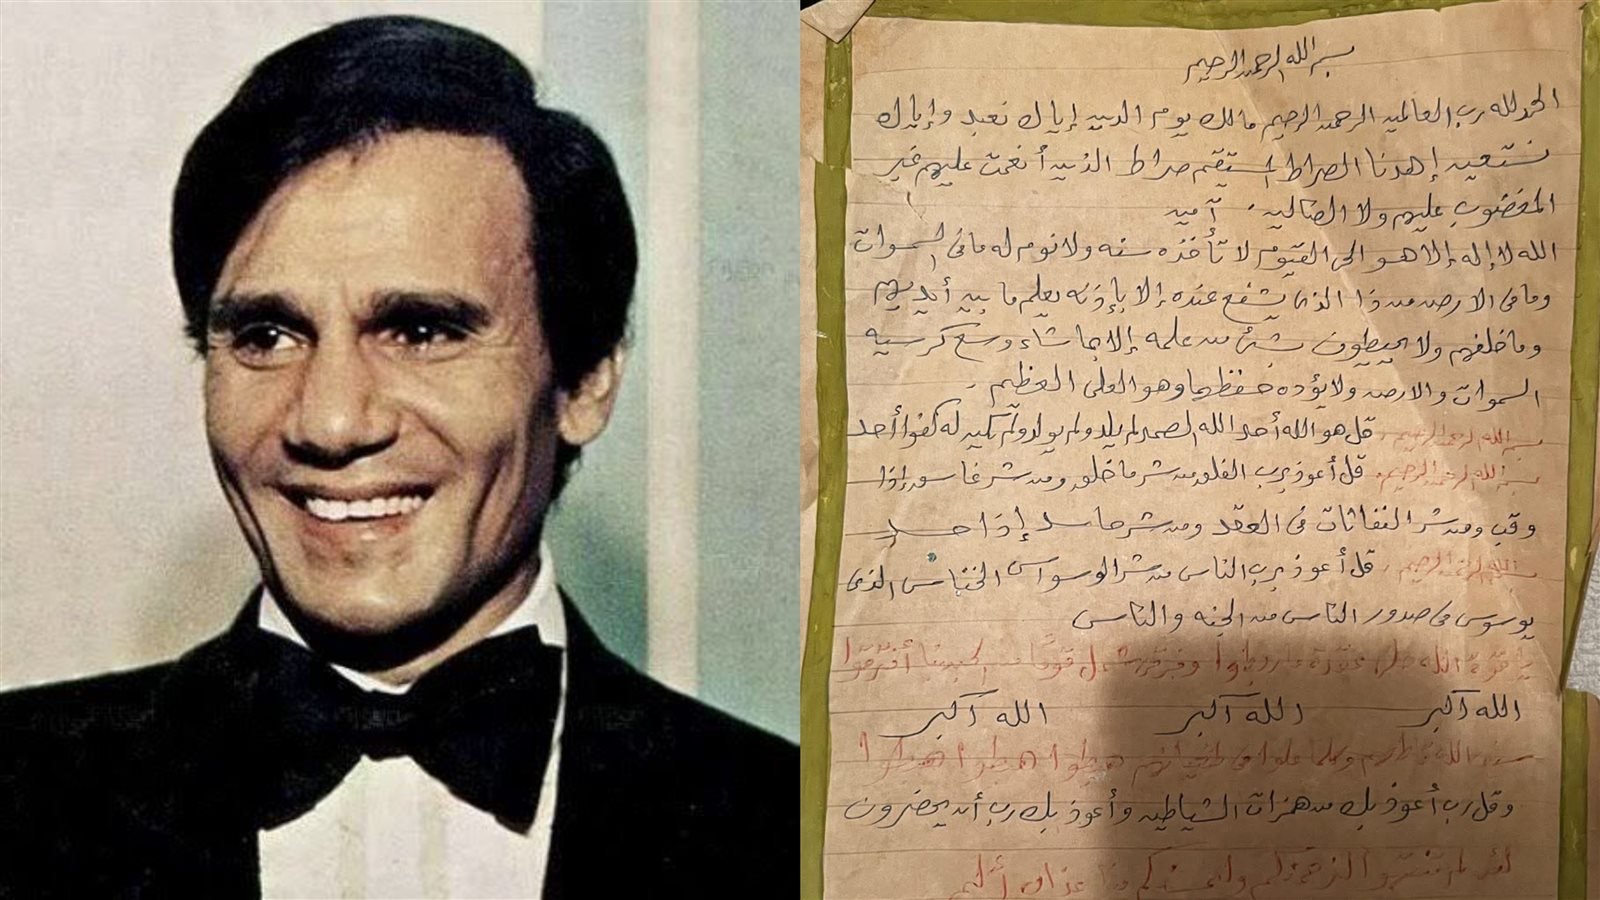 بسم الله الرحمن الرحيم
الحمد لله رب العالمين الرحمن الرحيم مالك يوم الدين إياك نعبد وإياك
نستعين إهدنا الصراط المستقيم صراط الذين أنعمت عليهم غير
المغضوب عليهم ولا الضالين . آمين
الله لا إله إلا هو الحى القيوم لا تأخذه سنه ولا نوم له ما فى السموات
وما فى الارض من ذا الذى يشفع عنده إلا بإذنه يعلم ما بين أيديهم
وما خلفهم ولا يحيطون بشئ من علمه إلا بما شاء وسع كرسيه
السموات والارض ولا يؤده حفظهما وهو العلى العظيم .
بسم الله الرحمن الرحيم . قل هو الله أحد الله الصمد لم يلد ولم يولد ولم يكن له كفوا أحد
بسم الله الرحمن الرحيم . قل أعوذ برب الفلق من شر ما خلق ومن شر غاسق إذا
وقب ومن شر النفاثات فى العقد ومن شر حاسد إذا حسد
بسم الله الرحمن الرحيم . قل أعوذ برب الناس من شر الوسواس الخناس الذى
يوسوس فى صدور الناس من الجنه والناس
الله أكبر الله أكبر الله أكبر
هبطوا هبطوا هبطوا
وقل رب أعوذ بك من همزات الشياطين وأعوذ بك رب أن يحضرون
عذاب أليم